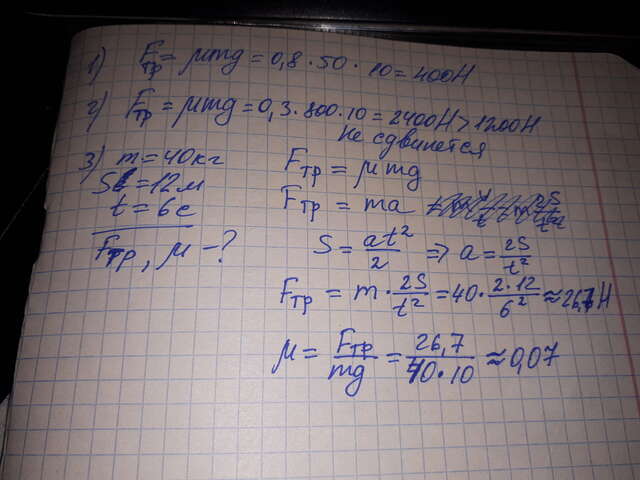 1) Fтр = μmg = 0,8 · 50 · 10 = 400Н
2) Fтр = μmg = 0,3 · 800 · 10 = 2400Н > 1200Н
Не сдвинется
3) m = 40 кг
S = 12 м
t = 6 с
Fтр, μ – ?
Fтр = μmg
Fтр = ma
S = at²/2 ⇒ a = 2S/t²
Fтр = m · 2S/t² = 40 · 2·12/6² ≈ 26,7 Н
μ = Fтр/mg = 26,7/40·10 ≈ 0,07